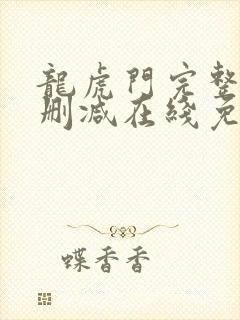 龍虎門完整
刪減在綫免
蝶香香